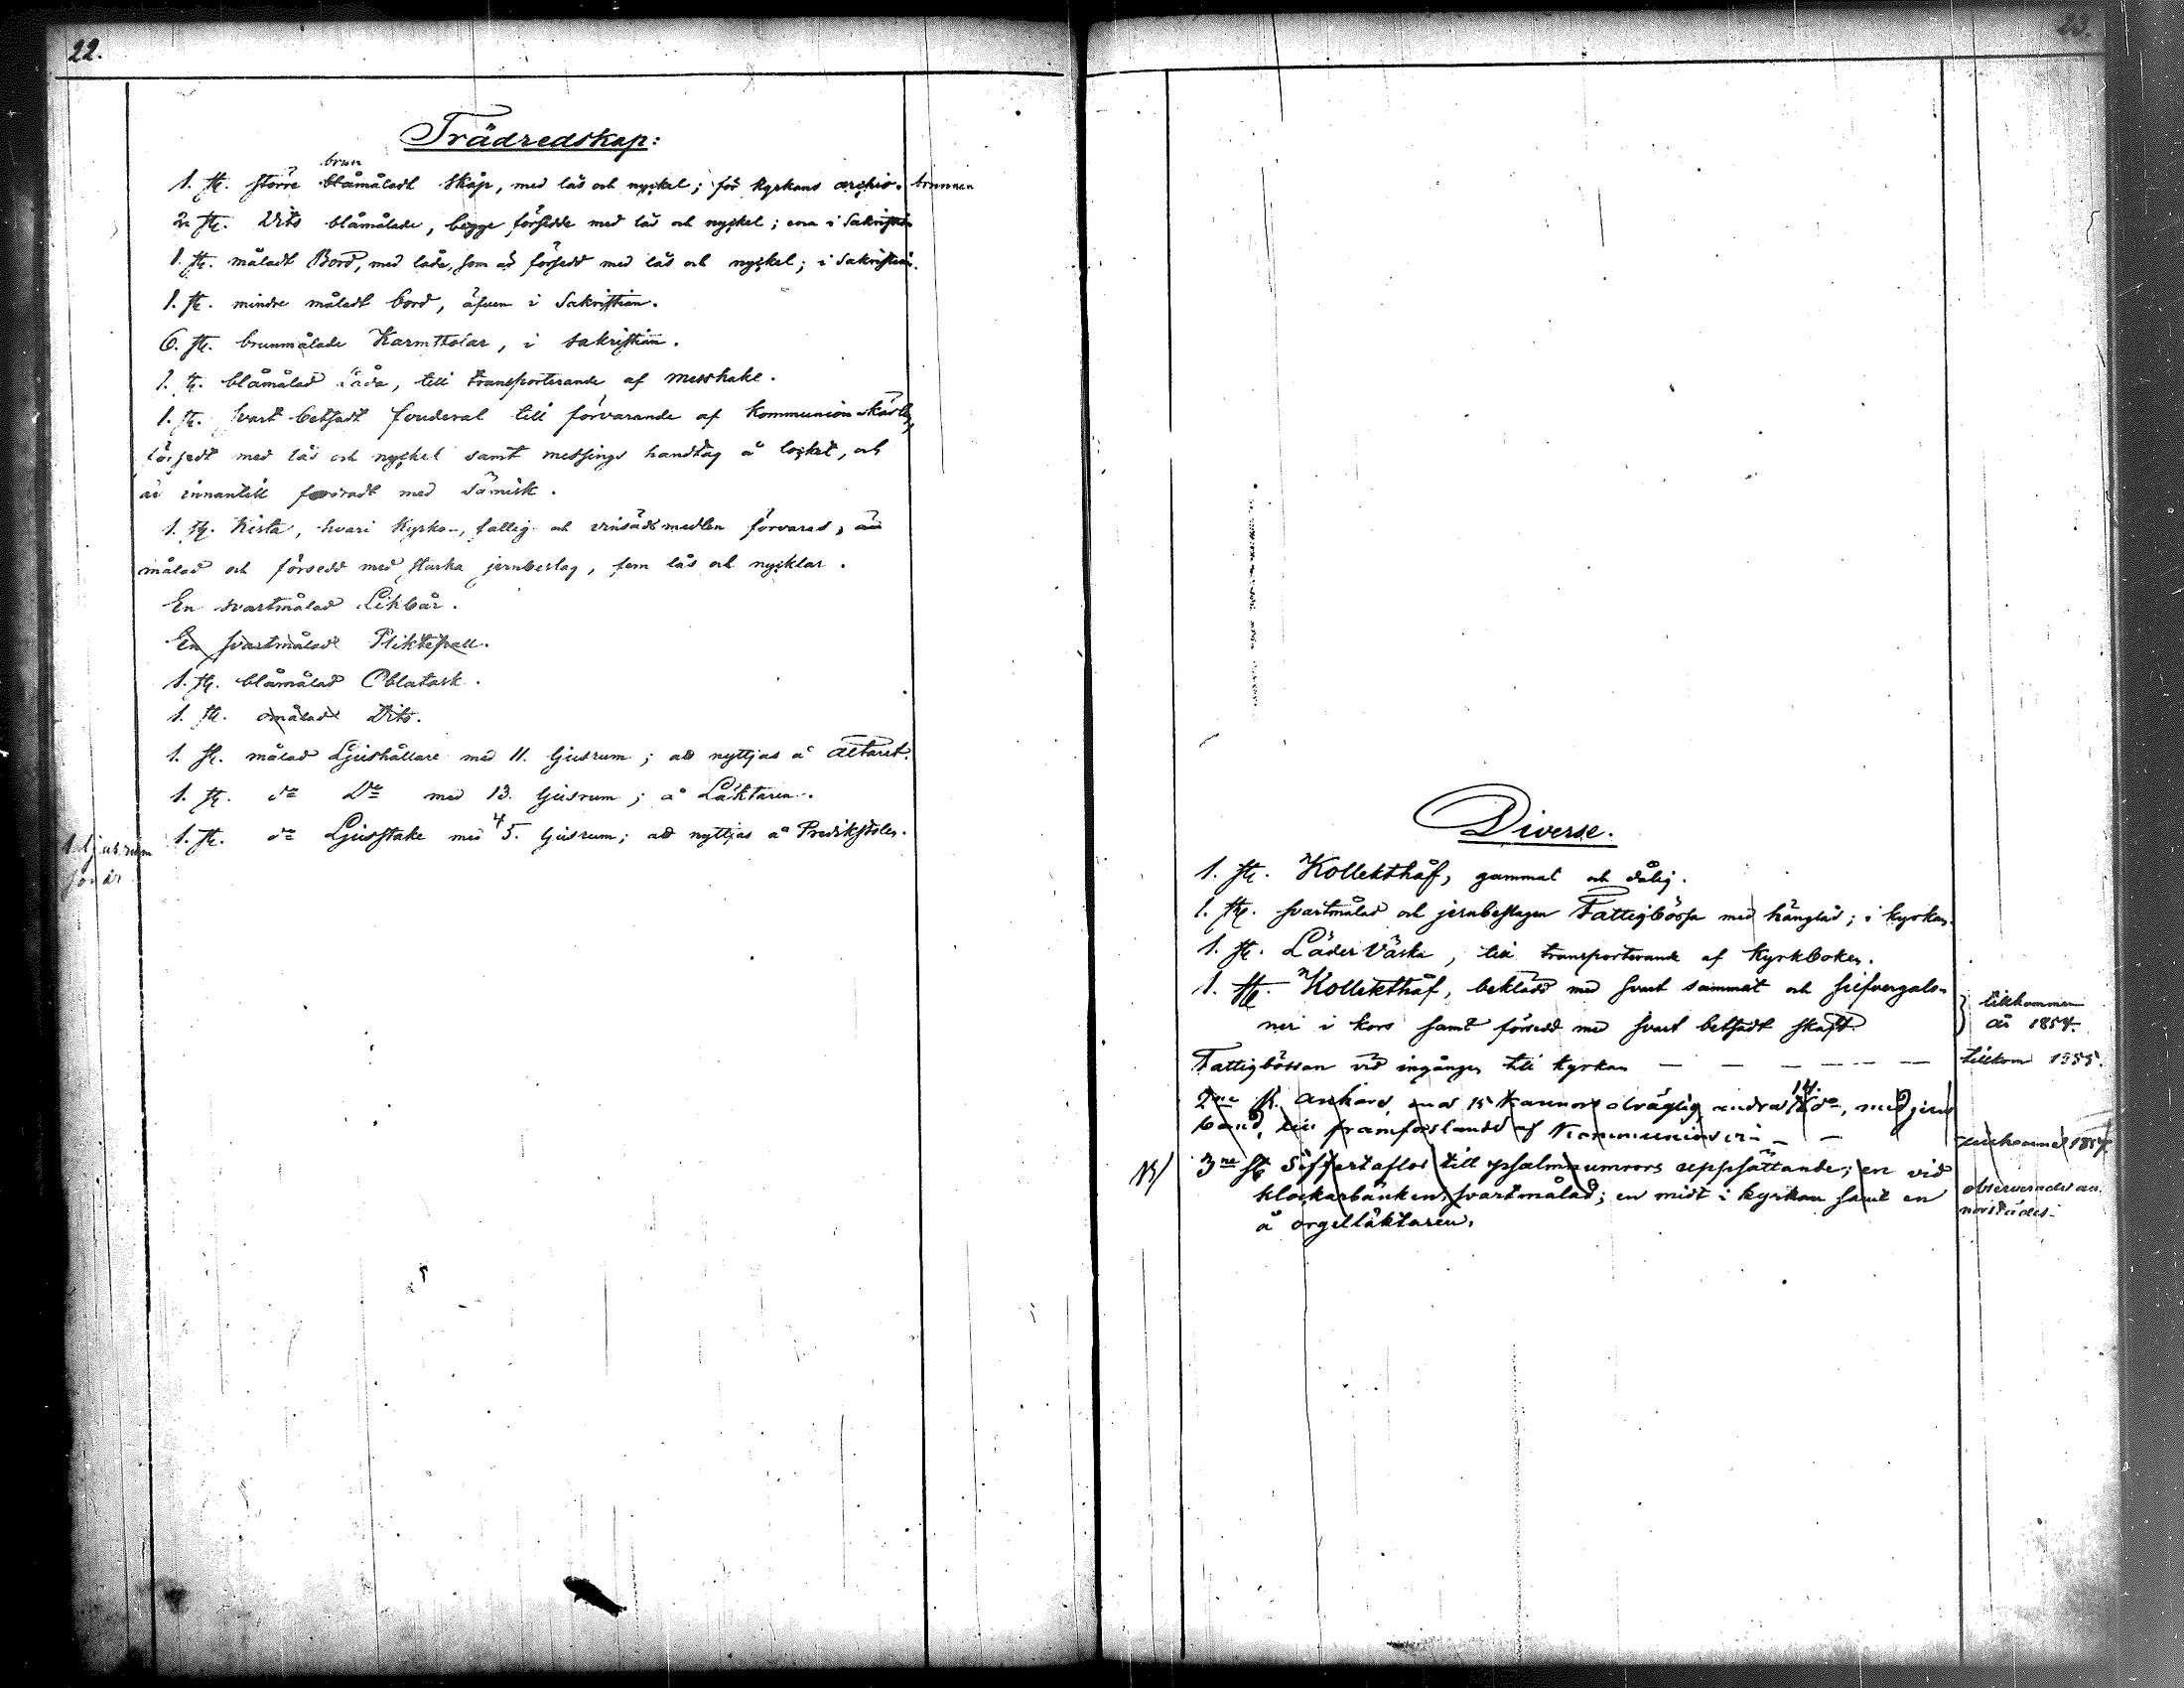 22.
Trädredskap:
brun
1. st. större blåmåladt skåp, med lås och nyckel; för kyrkans archiv. brunnen
2 st. Dito blåmålade, begge försedde med lås och nyckel; ena i Sakristian
1. st. måladt Bord, med låda, som är försedd med lås och nyckel; i Sakristian.
1. st. mindre måladt bord, äfven i Sakristian.
6. st. brunmålade Karmstolar, i sakristian.
1. st. blåmålad Låda, till transporterande af messhake.
1. st. svart betsadt fouderal till förvarande af kommunionskärlen,
försedt med lås och nyckel samt messings handtag å locket, och
är innantill fodradt med sämisk.
1. st. Kista, hvari Kyrko-, fattig- och vinsädsmedlen förvaras, är
målad och försedd med starka jernbeslag, fem lås och nycklar.
En svartmålad Likbår.
En svartmålad Pliktepall.
1. st. blåmålad Oblatask.
1. st. omålad Dito.
1. st. målad Ljushållare med 11. ljusrum; att nyttjas å altaret.
1. st. do Do med 13. ljusrum; å Läktaren.
4
1. st. do Ljusstake med 5. ljusrum; att nyttjas å Predikstolen.
1 ljusrum
för år
23.
Diverse.
1. st. Kollekthåf, gammal och dålig.
1. st. svartmålad och jernbeslagen Fattigbössa med hänglås; i kyrkan.
1. st. Läder Väska, till transporterande af Kyrkboken.
1. st. Kollekthåf, beklädd med svart sammat och silfvergalo-
ner i kors samt försedd med svart betsadt skaft.
tillkommen
år 1854.
Fattigbössan vid ingången till kyrkan — — — — — tillkom 1855.
14.
2ne st. ankare, 15 Kannors dräglig, andra 12 do, med jern
band, till framforslande af Kommunionsvin — —
1857
NB/ 3ne st. Siffertaflor till psalmnumrors uppsättande; en vid
klockarbänken, svartmålad; en midt i kyrkan samt en
å orgelläktaren.
observerades an
norstädes.